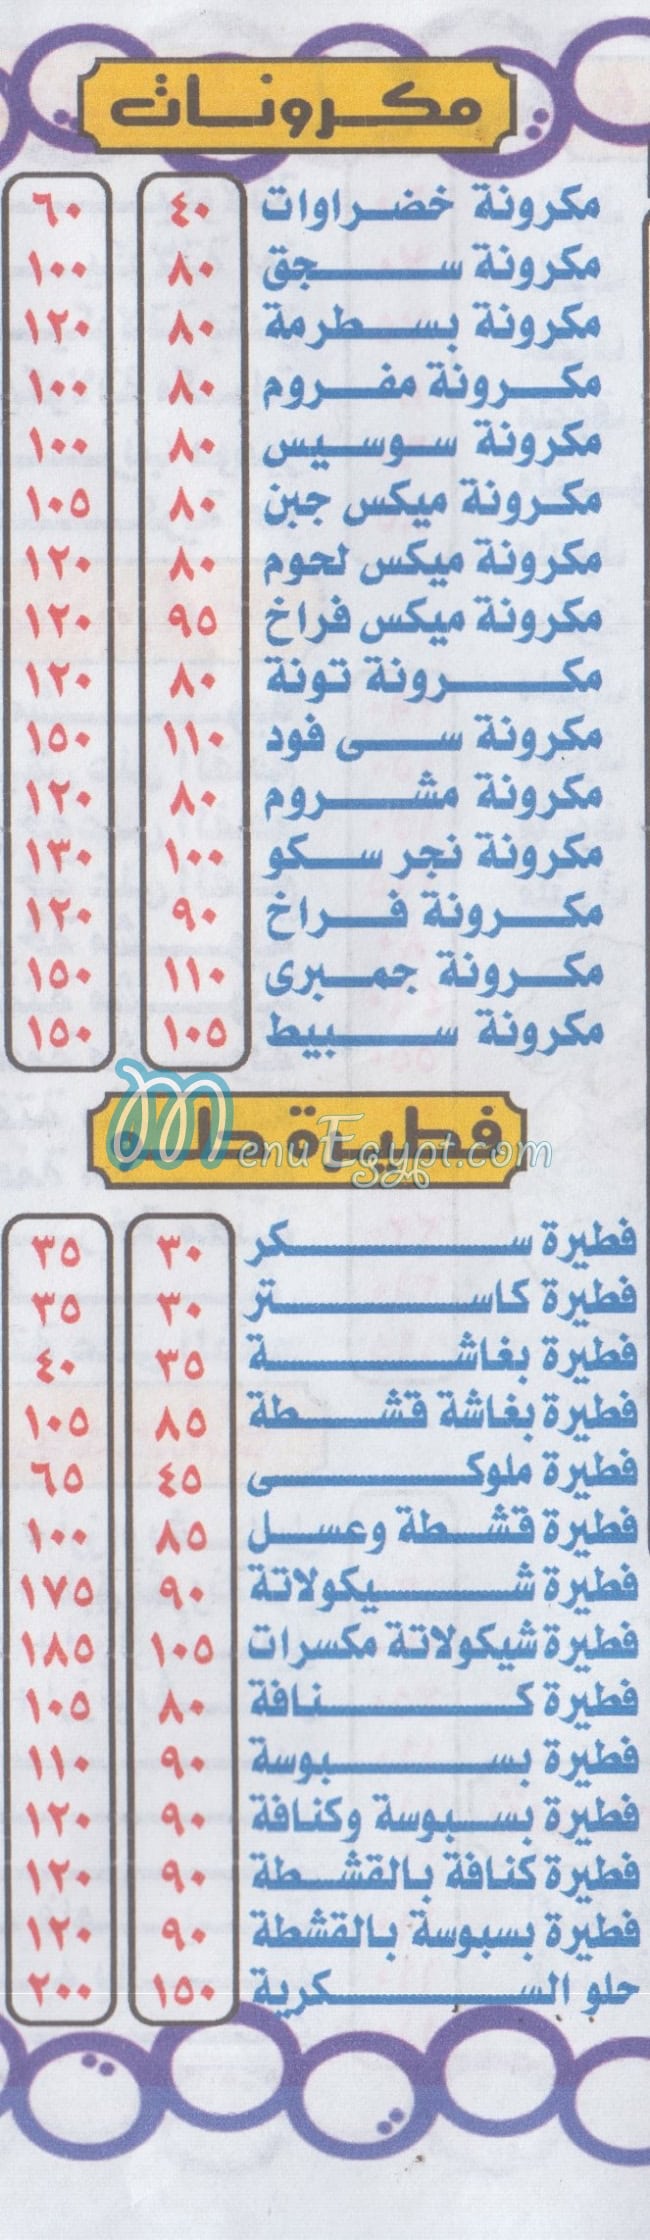 مكرونات
مكرونة خضراوات ٤٠ ٦٠
مكرونة سجق ٨٠ ١٠٠
مكرونة بسطرمة ٨٠ ١٢٠
مكرونة مفروم ٨٠ ١٠٠
مكرونة سوسيس ٨٠ ١٠٠
مكرونة ميكس جبن ٨٠ ١٠٥
مكرونة ميكس لحوم ٨٠ ١٢٠
مكرونة ميكس فراخ ٩٥ ١٢٠
مكرونة تونة ٨٠ ١٢٠
مكرونة سى فود ١١٠ ١٥٠
مكرونة مشروم ٨٠ ١٢٠
مكرونة نجر سكو ١٠٠ ١٣٠
مكرونة فراخ ٩٠ ١٢٠
مكرونة جمبرى ١١٠ ١٥٠
مكرونة سبيط ١٠٥ ١٥٠
فطيرة حلو
MenuEgypt.com
فطيرة سكر ٣٠ ٣٥
فطيرة كاستر ٣٠ ٣٥
فطيرة بغاشة ٣٥ ٤٠
فطيرة بغاشة قشطة ٨٥ ١٠٥
فطيرة ملوكى ٤٥ ٦٥
فطيرة قشطة وعسل ٨٥ ١٠٠
فطيرة شيكولاتة ٩٠ ١٧٥
فطيرة شيكولاتة مكسرات ١٠٥ ١٨٥
فطيرة كنافة ٨٠ ١٠٥
فطيرة بسبوسة ٩٠ ١١٠
فطيرة بسبوسة وكنافة ٩٠ ١٢٠
فطيرة كنافة بالقشطة ٩٠ ١٢٠
فطيرة بسبوسة بالقشطة ٩٠ ١٢٠
حلو السكرية ١٥٠ ٢٠٠